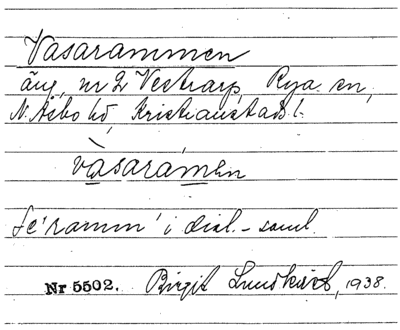 Vasarammen
äng, nr 2 Vestrarp, Rya sn,
N. Åsbo hd, Kristianstads l.
vàsarámen
se 'ramm' i dial.-saml.
Nr 5502. Birgit Lundkvist, 1938.